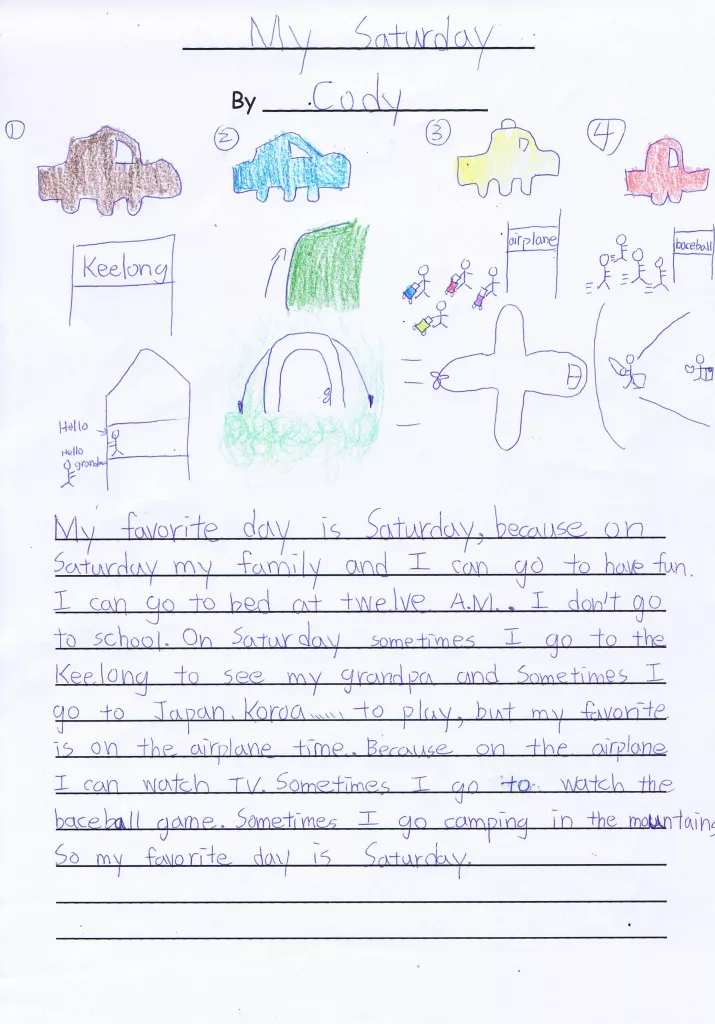 My Saturday
By Cody
① ② ③ ④
Keelong
airplane
baceball
Hello
Hello
grandpa
My favorite day is Saturday, because on
Saturday my family and I can go to have fun.
I can go to bed at twelve A.M.. I don't go
to school. On Saturday sometimes I go to the
Keelong to see my grandpa and sometimes I
go to Japan. Koroa...... to play, but my favorite
is on the airplane time. Because on the airplane
I can watch TV. Sometimes I go to watch the
baceball game. Sometimes I go camping in the mountains
So my favorite day is Saturday.